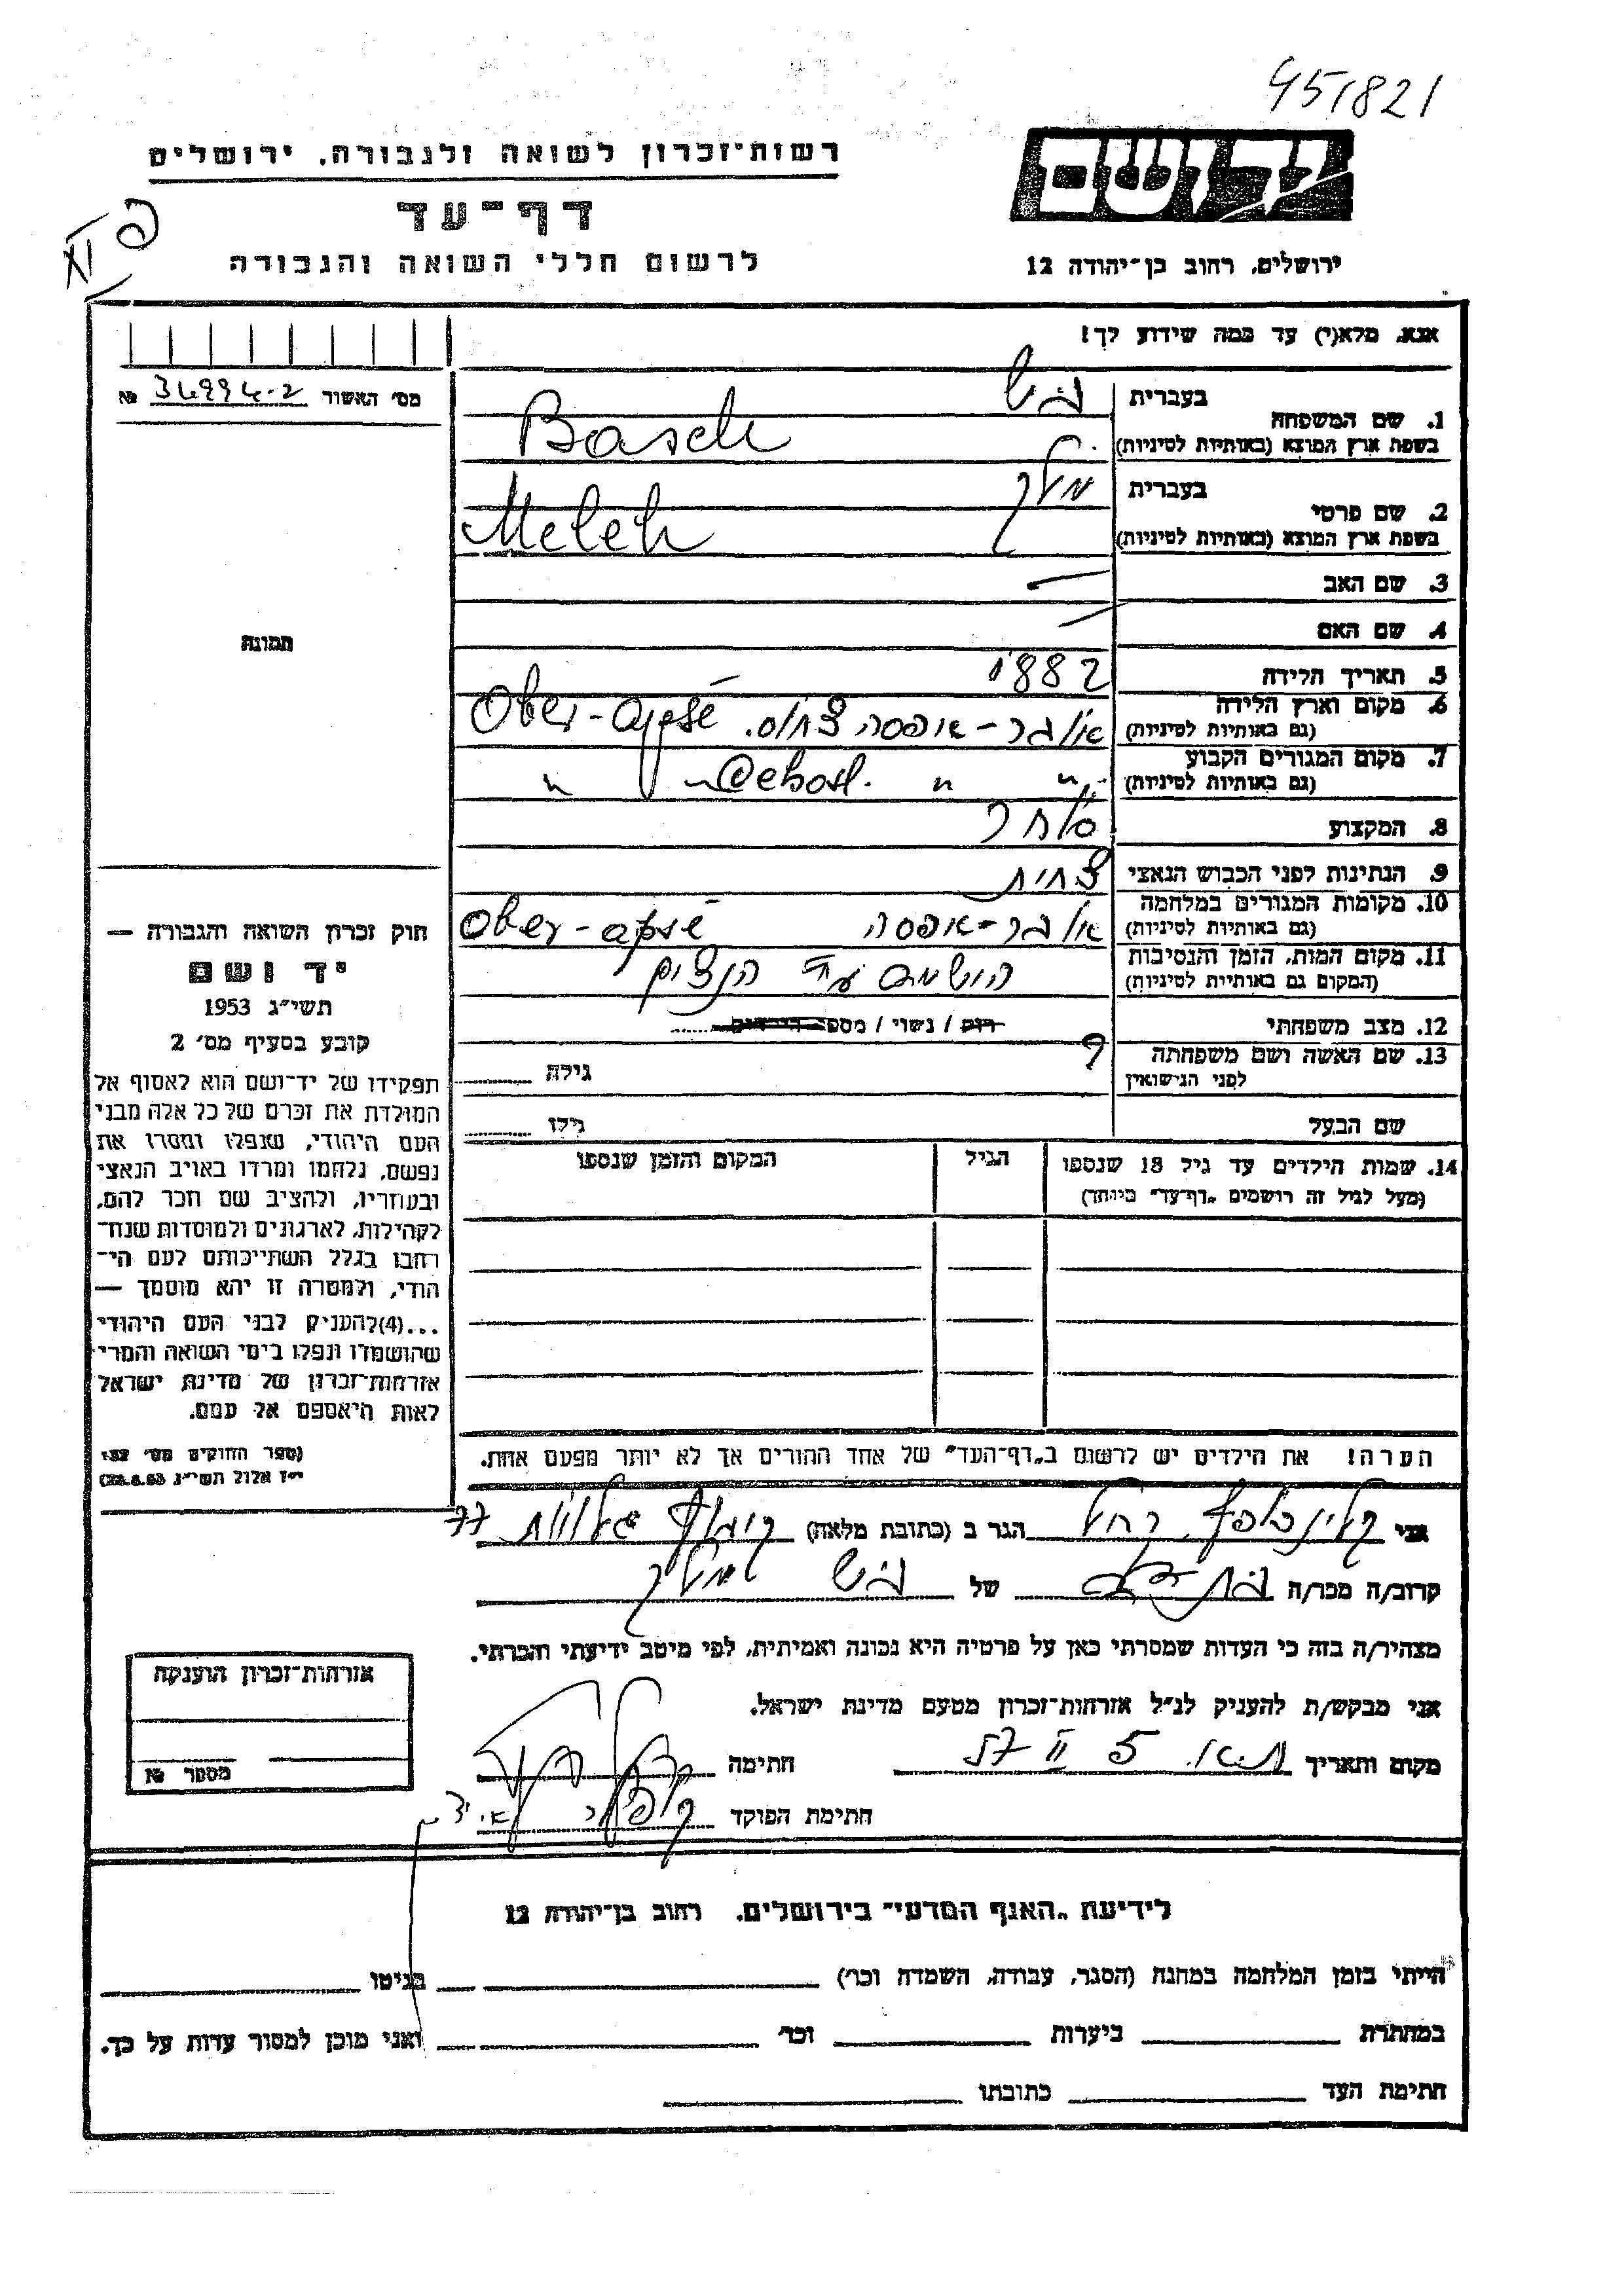 451821
יד ושם
רשות־זכרון לשואה ולגבורה, ירושלים
דף־עד
לרשום חללי השואה והגבורה
ירושלים, רחוב בן־יהודה 12
XI
אנא, מלא(י) עד כמה שידוע לך!
מס׳ האשור 34994-2 №
1. שם המשפחה בעברית בש
בשפת ארץ המוצא (באותיות לטיניות) Basch
2. שם פרטי בעברית מלך
בשפת ארץ המוצא (באותיות לטיניות) Meleh
3. שם האב —
4. שם האם —
5. תאריך הלידה 1882
6. מקום וארץ הלידה (גם באותיות לטיניות) אובר-אפסה צ׳כוס. Ober-apsé
7. מקום המגורים הקבוע (גם באותיות לטיניות) " " " "
8. המקצוע סוחר
9. הנתינות לפני הכבוש הנאצי צ׳כית
10. מקומות המגורים במלחמה (גם באותיות לטיניות) אובר-אפסה Ober-apsé
11. מקום המות, הזמן והנסיבות (המקום גם באותיית לטיניות) הושמד ע״י הנאצים
12. מצב משפחתי רוק / נשוי / מספר הילדים
13. שם האשה ושם משפחתה לפני הנישואין ? גילה
שם הבעל גילו
14. שמות הילדים עד גיל 18 שנספו
(מעל לגיל זה רושמים „דף־עד״ מיוחד)
הגיל
המקום והזמן שנספו
תמונה
חוק זכרון השואה והגבורה —
יד ושם
תשי״ג 1953
קובע בסעיף מס׳ 2
תפקידו של יד־ושם הוא לאסוף אל
המולדת את זכרם של כל אלה מבני
העם היהודי, שנפלו ומסרו את
נפשם, נלחמו ומרדו באויב הנאצי
ובעוזריו, ולהציב שם וזכר להם,
לקהילות, לארגונים ולמוסדות שנח־
רחבו בגלל השתייכותם לעם הי־
הודי, ולמטרה זו יהא מוסמך —
...(4)להעניק לבני העם היהודי
שהושמדו ונפלו בימי השואה והמרי
אזרחות־זכרון של מדינת ישראל
לאות היאספם אל עמם.
(ספר החוקים מס׳ 132
י״ז אלול תשי״ג 28.8.53)
הערה! את הילדים יש לרשום ב„דף־העד״ של אחד ההורים אך לא יותר מפעם אחת.
אני רחל הגר ב (כתובת מלאה) 77
קרוב/ה מכר/ה בת דוד של בש מלך
מצהיר/ה בזה כי העדות שמסרתי כאן על פרטיה היא נכונה ואמיתית, לפי מיטב ידיעתי והכרתי.
אני מבקש/ת להעניק לנ״ל אזרחות־זכרון מטעם מדינת ישראל.
מקום ותאריך 5 II 57 חתימה
חתימת הפוקד
אזרחות־זכרון הוענקה
מספר №
לידיעת „האגף המדעי״ בירושלים, רחוב בן־יהודה 12
הייתי בזמן המלחמה במחנה (הסגר, עבודה, השמדה וכו׳) בגיטו
במחתרת ביערות וכו׳ ואני מוכן למסור עדות על כך.
חתימת העד כתובתו